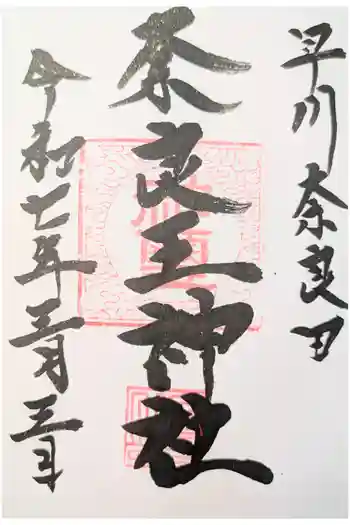 早川 奈良田
奈良王神社
令和七年三月三日